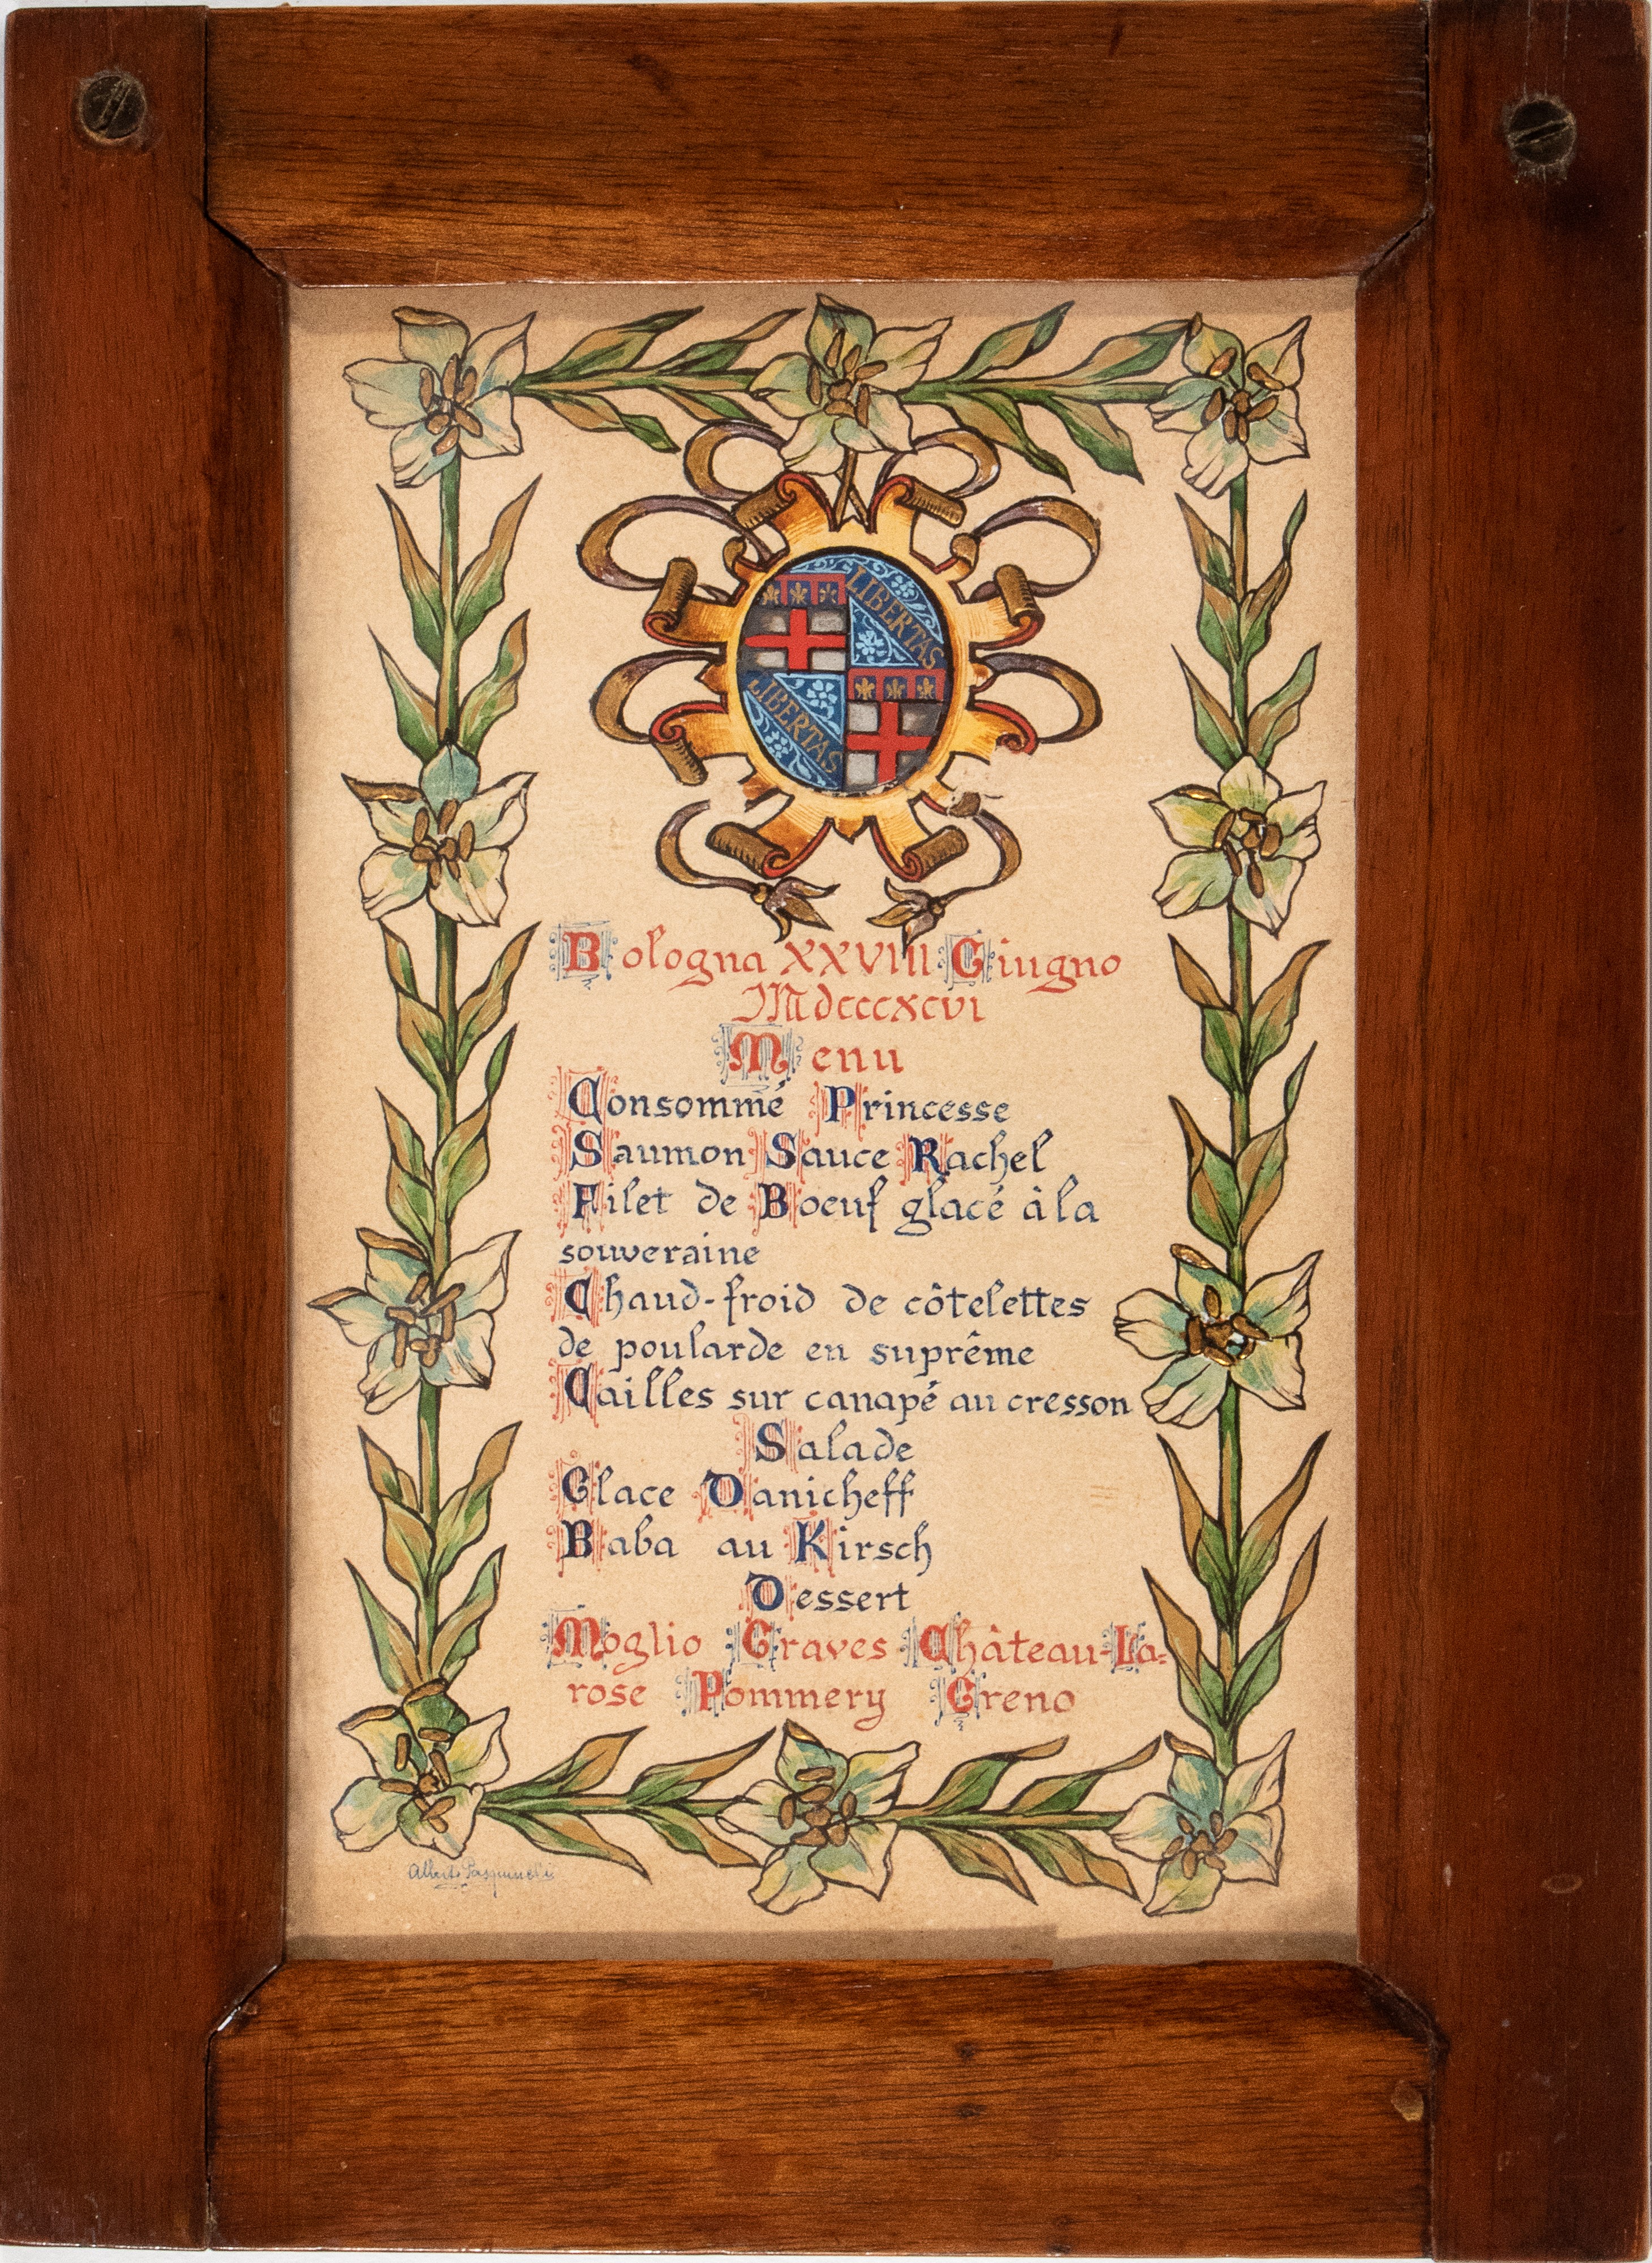 LIBERTAS
LIBERTAS
Bologna XXVIII Giugno
Mdcccxcvi
Menu
Consommé Princesse
Saumon Sauce Rachel
Filet de Boeuf glacé à la
souveraine
Chaud-froid de côtelettes
de poularde en suprême
Cailles sur canapé au cresson
Salade
Glace Danicheff
Baba au Kirsch
Dessert
Moglio Graves Château-La-
rose Pommery Greno
Alberto Pasquinelli